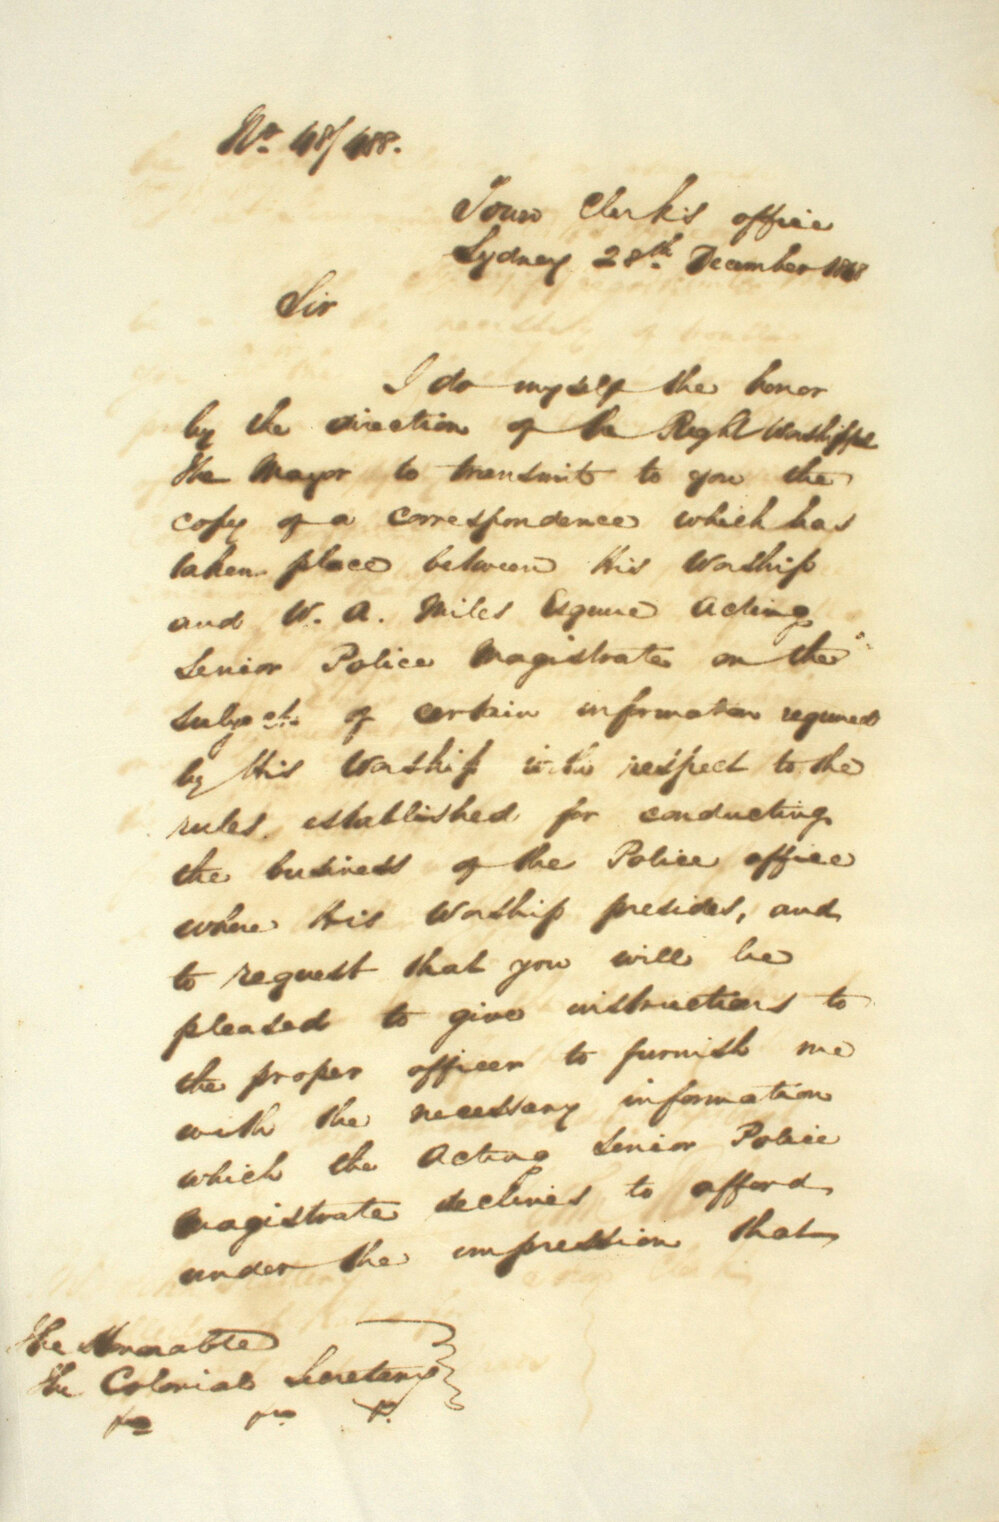 No. 48/488.
Town Clerk's office
Sydney 28th December 1848
Sir
I do myself the honor
by the direction of the Right Worshipful
the Mayor to transmit to you the
copy of a correspondence which has
taken place between His Worship
and W. A. Miles Esquire Acting
Senior Police Magistrate on the
subject of certain information required
by His Worship with respect to the
rules established for conducting
the business of the Police office
where His Worship presides, and
to request that you will be
pleased to give instructions to
the proper officer to furnish me
with the necessary information
which the Acting Senior Police
Magistrate declines to afford
under the impression that
The Honorable
The Colonial Secretary